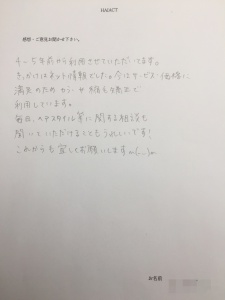 HAIACT
感想・ご意見お聞かせ下さい。
4〜5年前から利用させていただいてます。
きっかけはネット情報でした。今はサービス・価格に
満足のため
利用しています。
毎回、ヘアスタイル等に関する相談を
聞いていただけることもうれしいです!
これからも宜しくお願いしますm(_ _)m
お名前